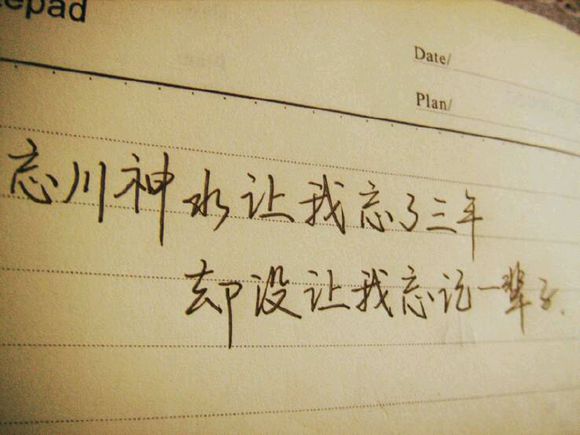 epad
Date/
Plan/
忘川神水让我忘了三年
却没让我忘记一辈子.